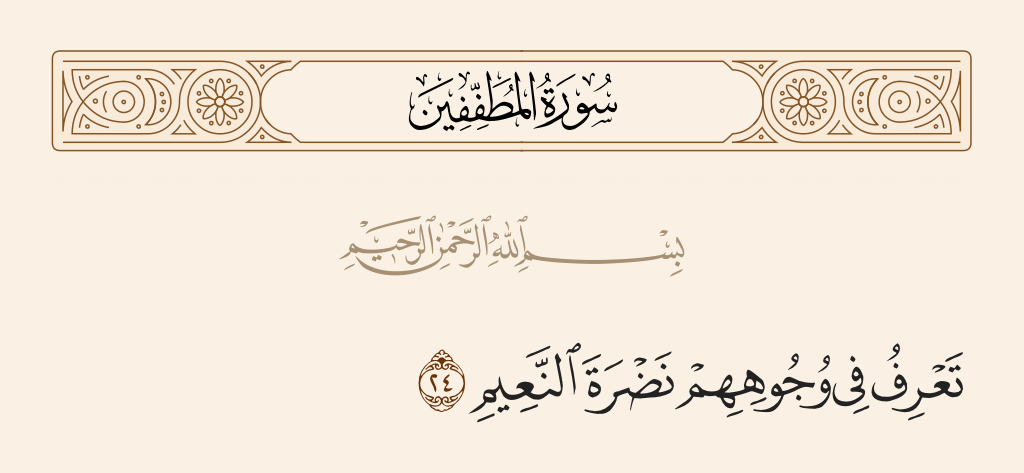 سُورَةُ المُطَفِّفِينَ
بِسْمِ ٱللَّهِ ٱلرَّحْمَٰنِ ٱلرَّحِيمِ
تَعْرِفُ فِى وُجُوهِهِمْ نَضْرَةَ ٱلنَّعِيمِ ٢٤